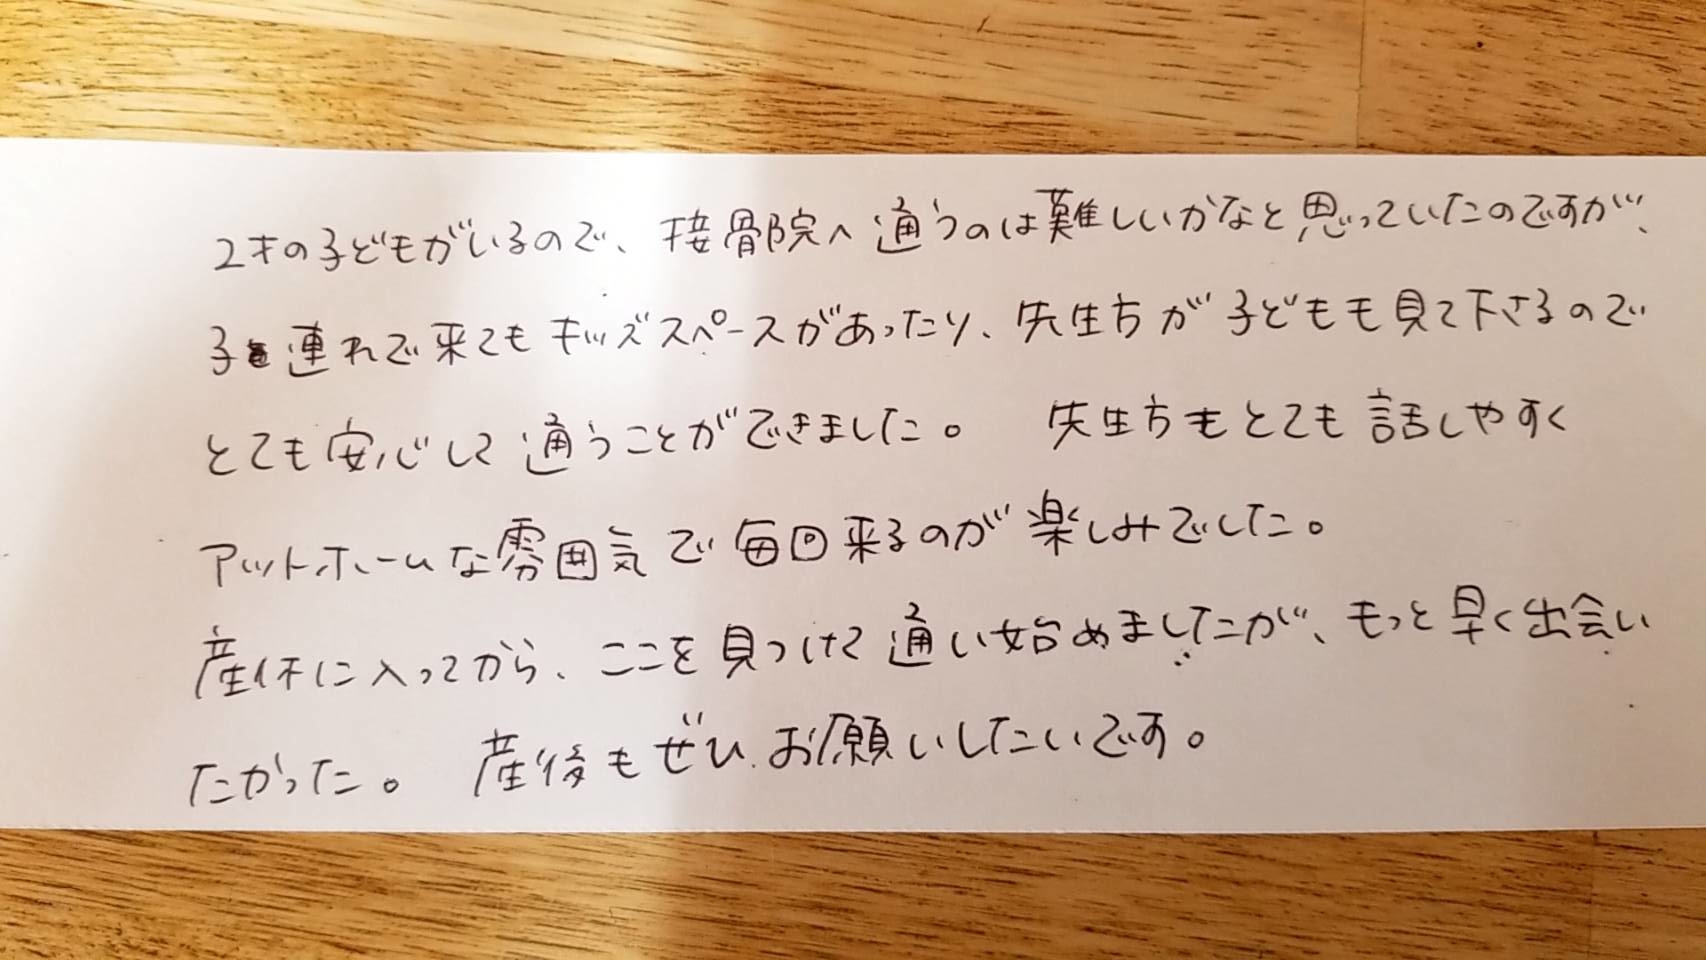 2才の子どもがいるので、接骨院へ通うのは難しいかなと思っていたのですが、
子連れで来てもキッズスペースがあったり、先生方が子どもも見て下さるので
とても安心して通うことができました。 先生方もとても話しやすく
アットホームな雰囲気で毎回来るのが楽しみでした。
産休に入ってから、ここを見つけて通い始めましたが、もっと早く出会い
たかった。 産後もぜひお願いしたいです。